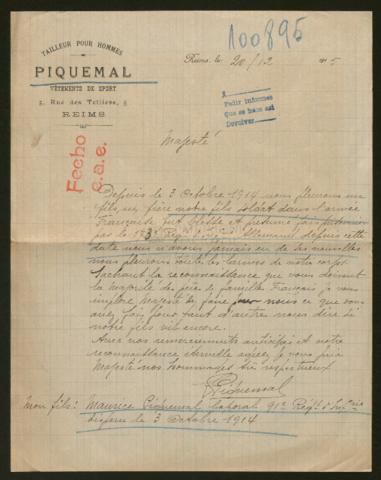 TAILLEUR POUR HOMMES
PIQUEMAL
VÊTEMENTS DE SPORT
5, Rue des Telliers, 5
REIMS
100895
Reims, le 20/12 15
Pedir informes
Que se hace así
Devolver
Fecho
Majesté
Depuis le 3 octobre 1914 nous pleurons un
fils, un frère notre fils soldat dans l'armée
Française fut blessé et présumé
par le Allemand, depuis cette
date nous n'avons jamais eu de ses nouvelles
nous pleurons toute les larmes de notre corps.
Sachant la reconnaissance que vous doivent
la majorité des père de famille Français je vous
implore Majesté de faire pour nous ce que vous
avez fait pour tant d'autre nous dire si
notre fils vit encore.
Avec nos remerciements anticipés et notre
reconnaissance éternelle agréez, je vous prie
Majesté nos hommages très respectueux
Piquemal
Mon fils: Maurice Piquemal Caporal 91e Regt d'Infrie
disparu le 3 Octobre 1914